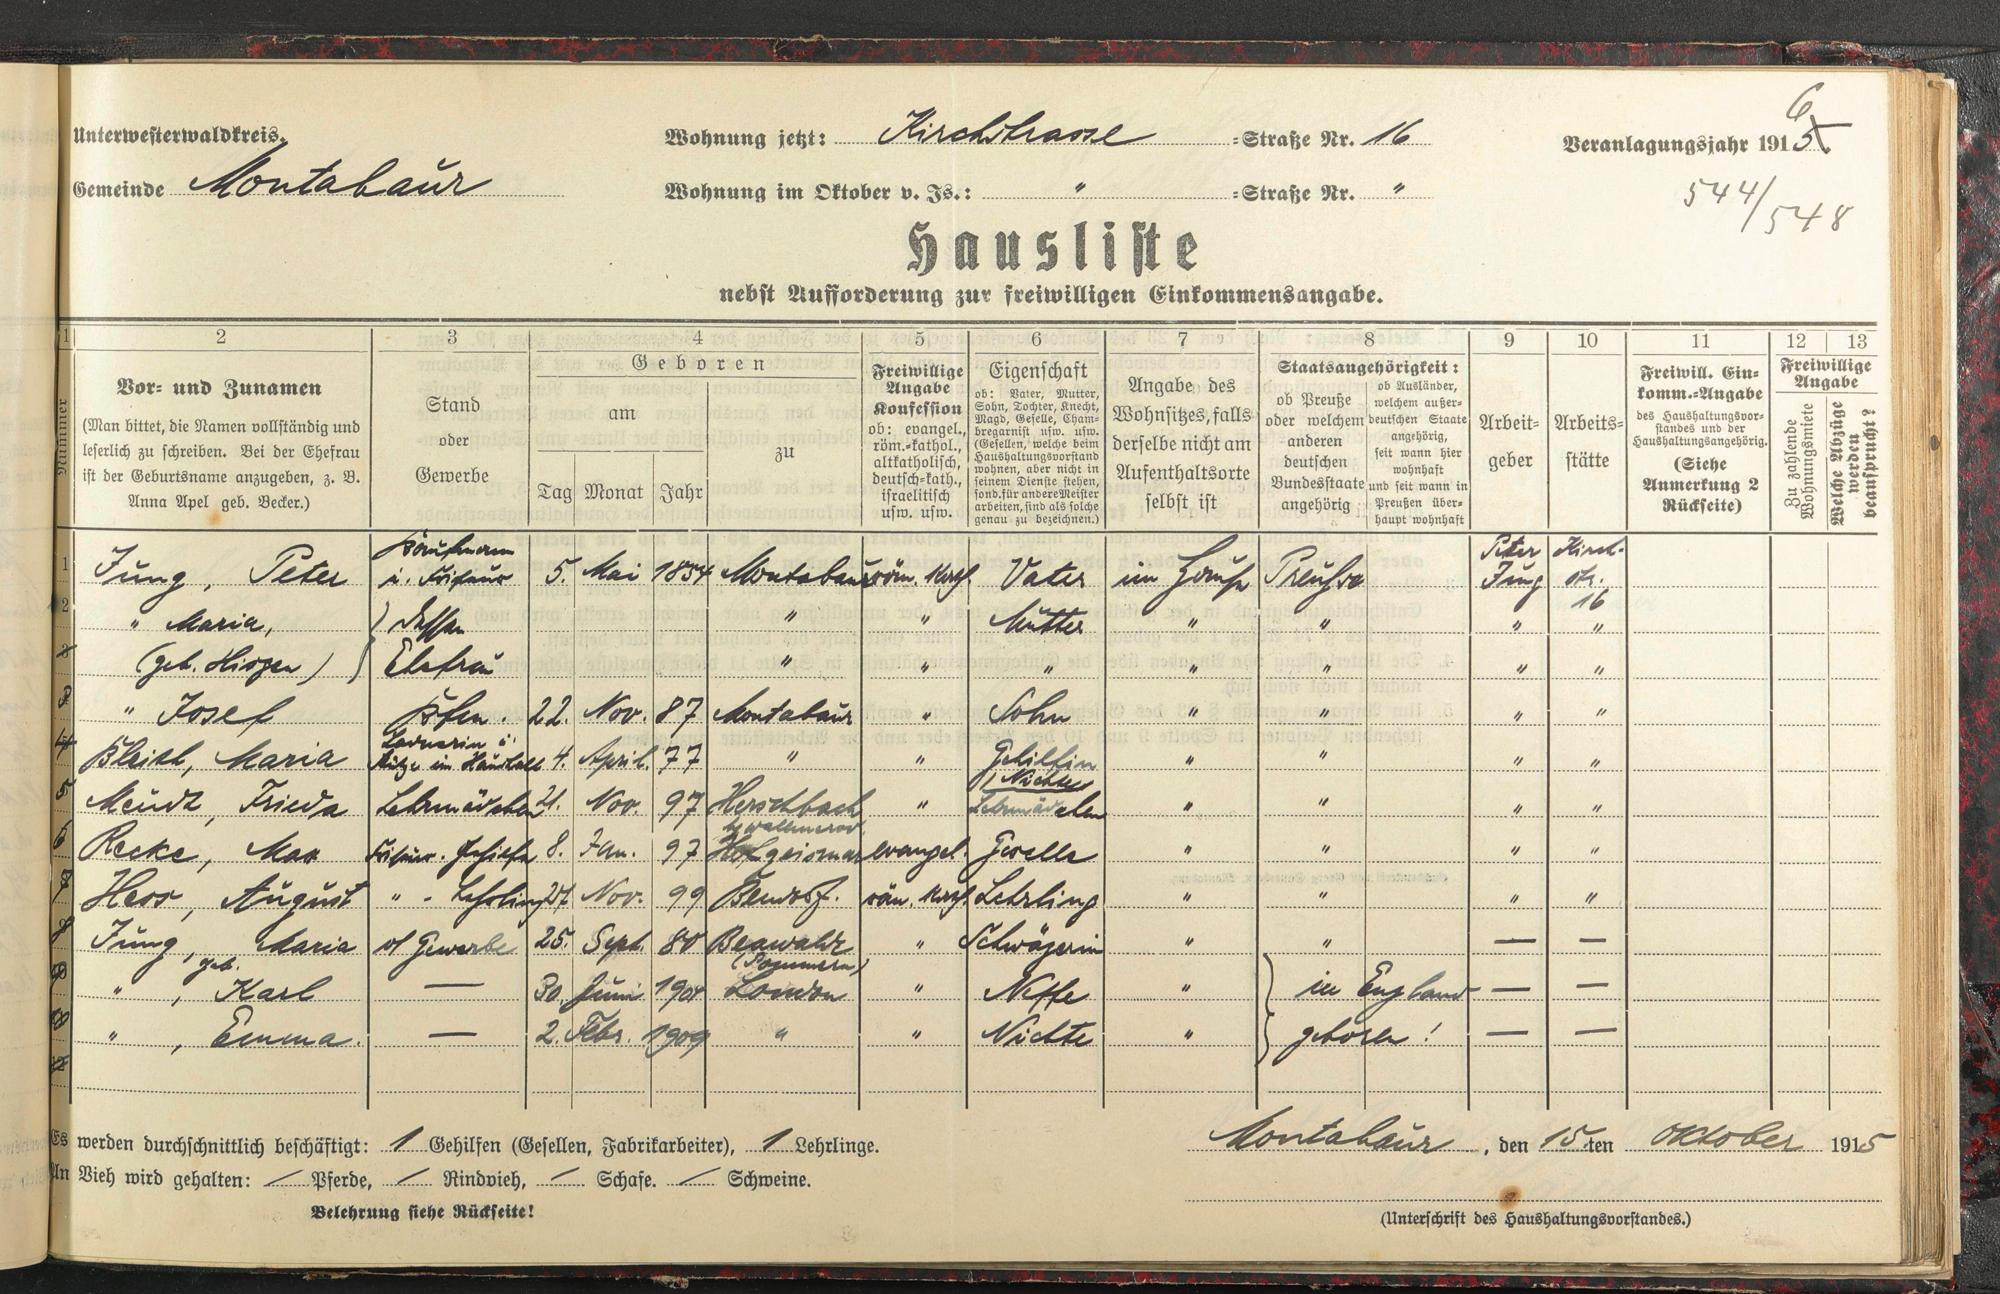 Unterwesterwaldkreis.
Gemeinde Montabaur
Wohnung jetzt: Kirchstrasse =Straße Nr. 16
Wohnung im Oktober v. Js.: " =Straße Nr. "
Veranlagungsjahr 1915 6
544/548
Hausliste
nebst Aufforderung zur freiwilligen Einkommensangabe.
1 2 3 4 5 6 7 8 9 10 11 12 13
Nummer
Vor- und Zunamen
(Man bittet, die Namen vollständig und
leserlich zu schreiben. Bei der Ehefrau
ist der Geburtsname anzugeben, z. B.
Anna Apel geb. Becker.)
Stand
oder
Gewerbe
Geboren
am
Tag Monat Jahr
zu
Freiwillige
Angabe
Konfession
ob: evangel.,
röm.-kathol.,
altkatholisch,
deutsch-kath.,
israelitisch
usw. usw.
Eigenschaft
ob: Vater, Mutter,
Sohn, Tochter, Knecht,
Magd, Geselle, Cham-
bregarnist usw. usw.
(Gesellen, welche beim
Haushaltungsvorstand
wohnen, aber nicht in
seinem Dienste stehen,
sond. für andere Meister
arbeiten, sind als solche
genau zu bezeichnen.)
Angabe des
Wohnsitzes, falls
derselbe nicht am
Aufenthaltsorte
selbst ist
Staatsangehörigkeit:
ob Preuße
oder welchem
anderen
deutschen
Bundesstaate
angehörig
ob Ausländer,
welchem außer-
deutschen Staate
angehörig,
seit wann hier
wohnhaft
und seit wann in
Preußen über-
haupt wohnhaft
Arbeit-
geber
Arbeits-
stätte
Freiwill. Ein-
komm.-Angabe
des Haushaltungsvor-
standes und der
Haushaltungsangehörig.
(Siehe
Anmerkung 2
Rückseite)
Freiwillige
Angabe
Zu zahlende
Wohnungsmiete
Welche Abzüge
werden
beansprucht?
1 Jung, Peter Kaufmann u. Friseur 5. Mai 1854 Montabaur röm. kath. Vater im Hause Preusse Peter Jung Kirch-str. 16
2 " Maria, Dessen " " Mutter " " " "
(geb. Hisgen) Ehefrau " " " " " " "
3 " Josef Kfm. 22. Nov. 87 Montabaur " Sohn " " " "
4 Bleith, Maria Ladnerin u. Stütze im Haushalt 4. April. 77 " " Gehilfin " " " "
5 Meudt, Frieda Lehrmädchen 21. Nov. 97 Herschbach b/ Wallmerod. " (Nichte) Lehrmädchen " " " "
6 Recke, Max Friseur-Gehilfe 8. Jan. 97 Hofgeismar evangel. Geselle " " " "
7 Hess, August " - Lehrling 27. Nov. 99 Bendorf. röm. kath. Lehrling " " " "
8 Jung, Maria geb. o/ Gewerbe 25. Sept. 80 (Pommern) " Schwägerin " " — —
9 " , Karl — 30. Juni London " Neffe " in England — —
" , Emma. — 2. Febr. 1909 " " Nichte " geboren! — —
Es werden durchschnittlich beschäftigt: 1 Gehilfen (Gesellen, Fabrikarbeiter), 1 Lehrlinge.
An Vieh wird gehalten: / Pferde, / Rindvieh, / Schafe. / Schweine.
Belehrung siehe Rückseite!
Montabaur, den 15ten Oktober 1915
(Unterschrift des Haushaltungsvorstandes.)